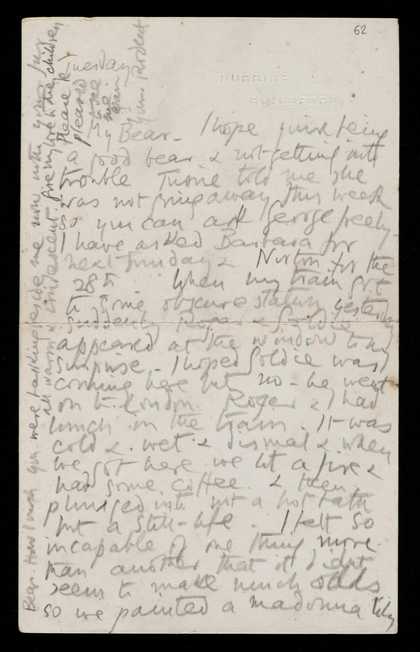 62
Tuesday
Bear - I hope you're being
a good bear & not getting into
trouble told me she
was not going away this week
so you can ask George freely
I have asked Barbara for
next Sunday & Norton for the
28th When my train got
to some obscure station yesterday
suddenly Roger & Goldie
appeared at the window to my
surprise - I hoped Goldie was
coming here but no - he went
on to London. Roger & I had
lunch in the train. It was
cold & wet & dismal & when
we got here we lit a fire &
had some coffee & then
plunged into not a hot bath
but a still-life. I felt so
incapable of one thing more
than another that it didnt
seem to make much odds
so we painted a madonna lily
Bear. How I wish you were beside me now with your fur
all warm &
give my love to the children
Please
pleased
some
me
your Rodent